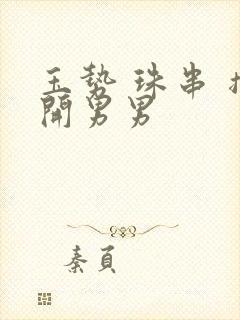 玉势 珠串
開男男
秦頁